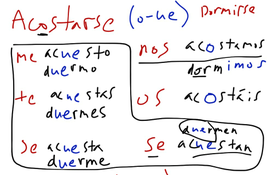 Acostarse (o-ue) Dormirse
me acuesto nos acostamos
duermo dormimos
te acuestas os acostáis
duermes
se acuesta se acuestan
duerme duermen